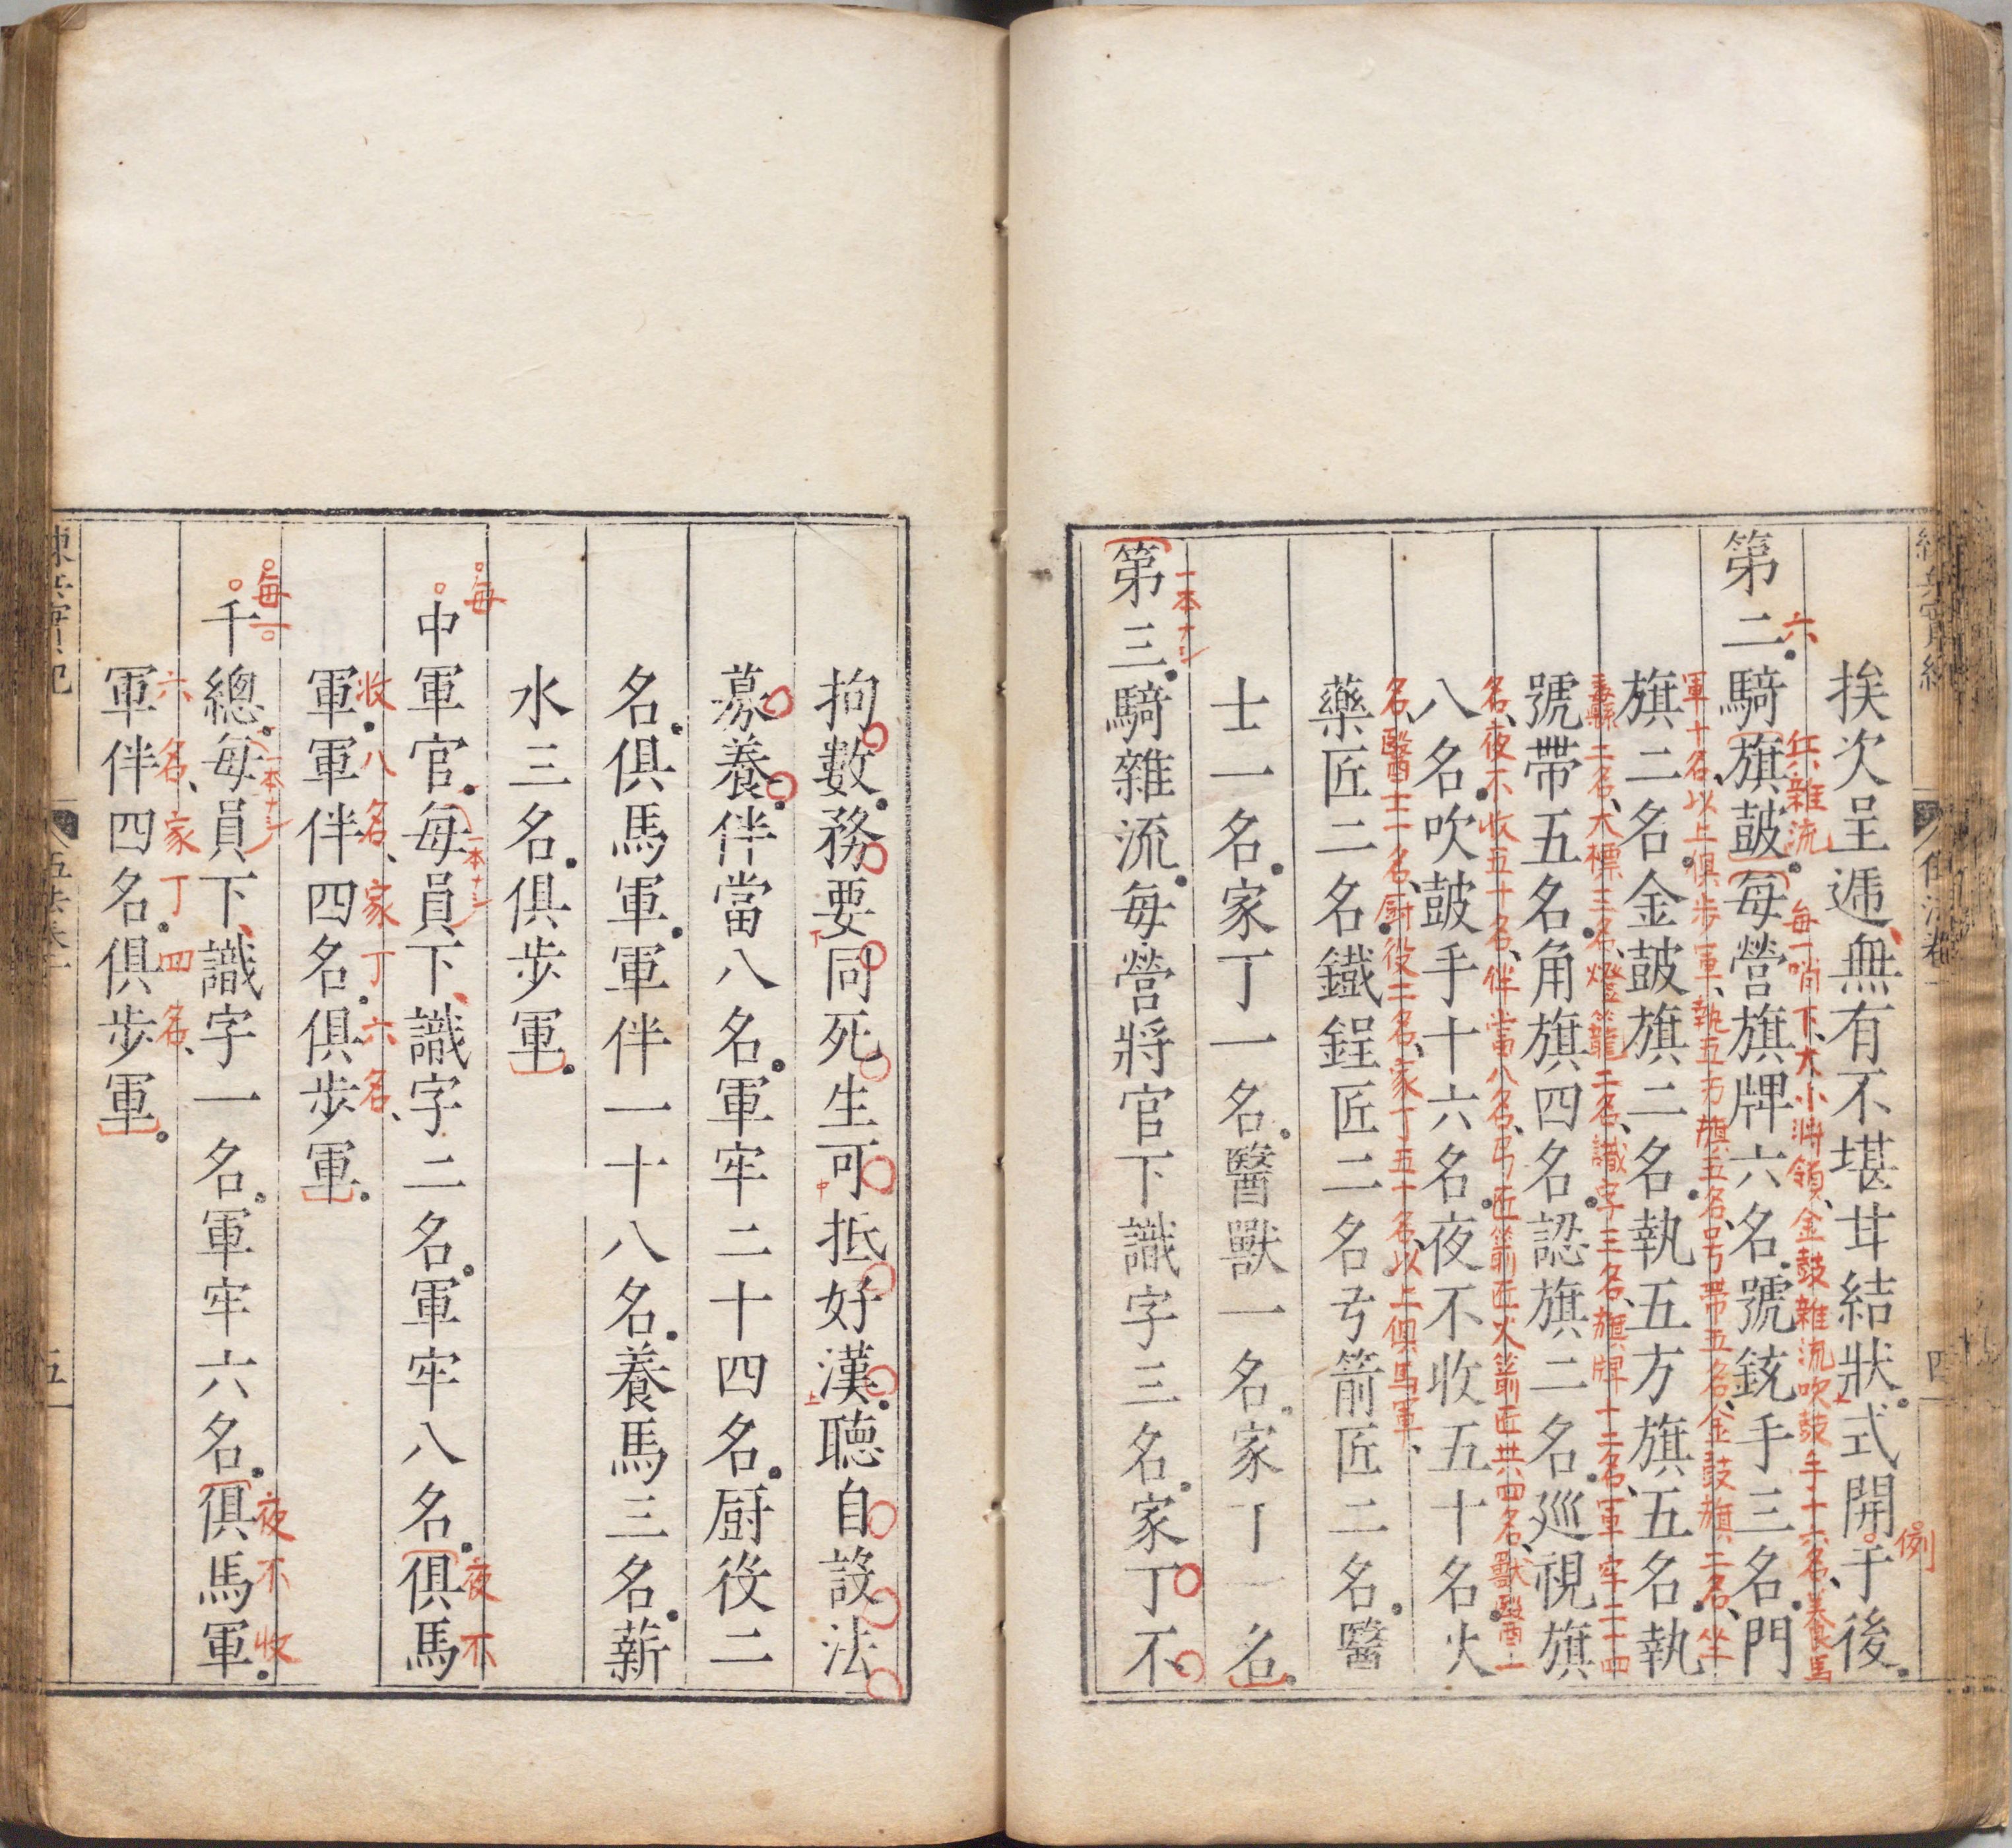 挨次呈遞無有不堪甘結狀式開于後
例
六
兵雜流
每一哨下大小將領金鼓雜流吹鼓手十六名養馬
第二騎旗鼓每營旗牌六名號銃手三名門
軍十名以上俱步軍執五方旗五名号帶五名金鼓旗二名坐
旗二名金鼓旗二名執五方旗五名執
纛二名大標三名燈籠二名識字三名旗牌十二名軍牢二十四
號帶五名角旗四名認旗二名巡視旗
名夜不收五十名伴當八名弓匠箭匠火箭匠共四名獸醫一
八名吹鼓手十六名夜不收五十名火
名醫士一名厨役二名家丁五十名以上俱馬軍
藥匠二名鐵鋥匠二名弓箭匠二名醫
士一名家丁一名醫獸一名家丁一名
一本ナシ
第三騎雜流每營將官下識字三名家丁不
拘數務要同死生可抵好漢聽自設法
下
中
上
募養伴當八名軍牢二十四名厨役二
名俱馬軍軍伴一十八名養馬三名薪
水三名俱步軍
每
一本ナシ
夜不
中軍官每員下識字二名軍牢八名俱馬
收八名家丁六名
軍軍伴四名俱步軍
每一
一本ナシ
夜不收
千總每員下識字一名軍牢六名俱馬軍
六名家丁四名
軍伴四名俱步軍
練兵實紀
五